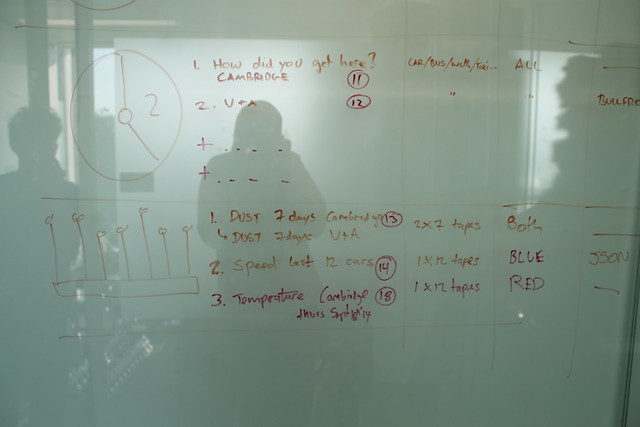 2
1. How did you get here? CAR/BUS/walk/trai... ALL
CAMBRIDGE 11
2. V+A 12 " " BULLFRO
+ - - - -
+ - - - -
1. DUST 7 days Cambridge 13 2x7 tapes Both
↳ DUST 7 days V+A
2. Speed last 12 cars 14 1x12 tapes BLUE JSON
3. Temperature Cambridge 18 1x12 tapes RED —
thurs Sept 18th '14